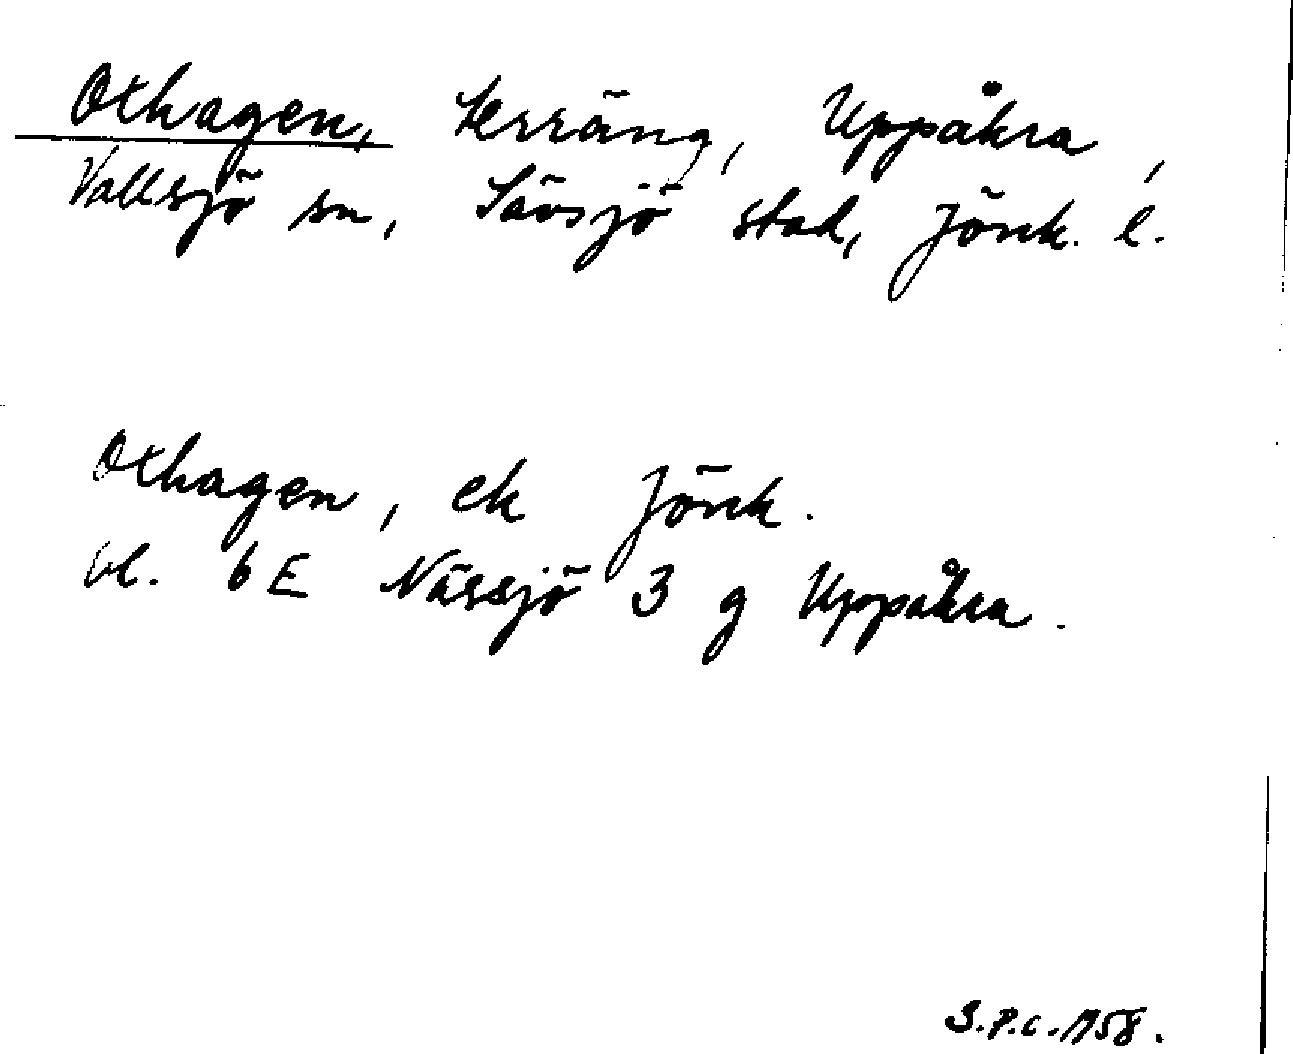 Oxhagen, terräng, Uppåkra,
Vallsjö sn, Sävsjö stad, Jönk. l.
Oxhagen, ek Jönk.
bl. 6 E Nässjö 3 g Uppåkra.
S.P.C. 1958.